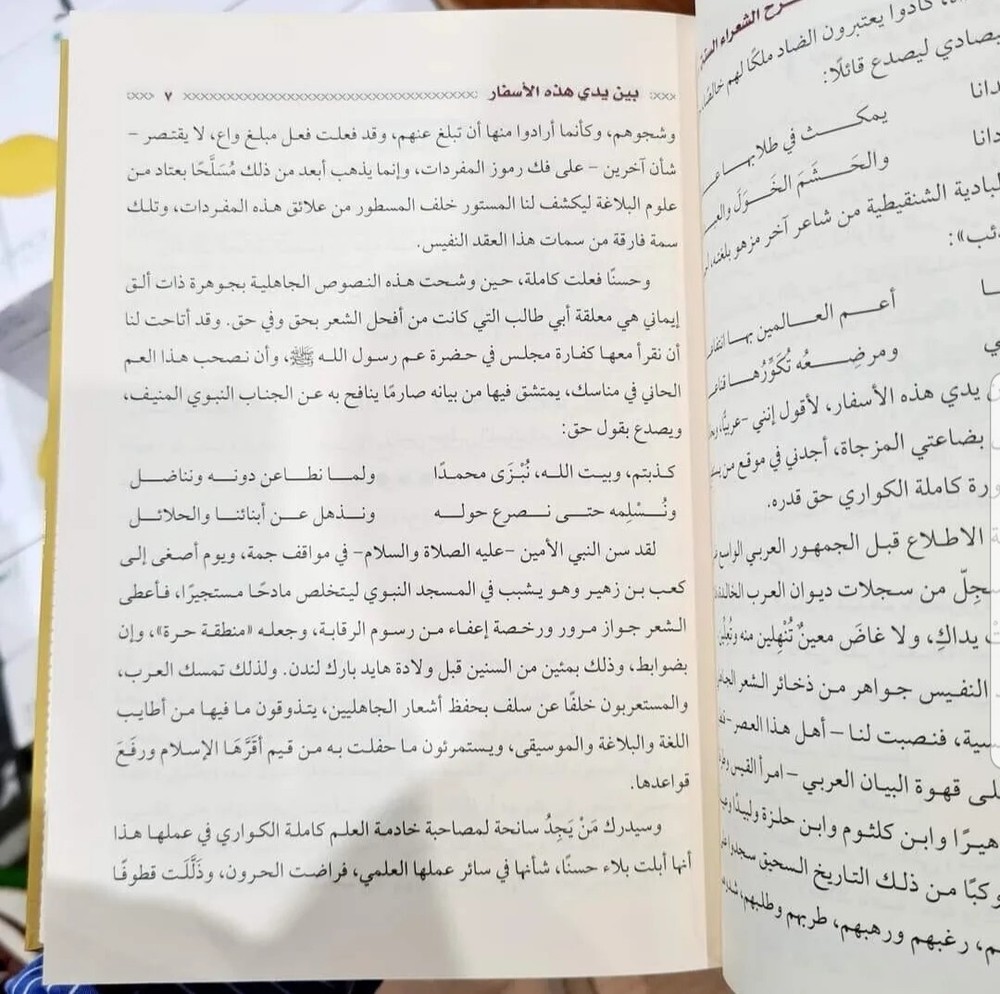 بين يدي هذه الأسفار ٧
وشجوهم، وكأنما أرادوا منها أن تبلغ عنهم، وقد فعلت فعل مبلغ واع، لا يقتصر –
شأن آخرين – على فك رموز المفردات، وإنما يذهب أبعد من ذلك مُسَلَّحًا بعتاد من
علوم البلاغة ليكشف لنا المستور خلف المسطور من علائق هذه المفردات، وتلك
سمة فارقة من سمات هذا العقد النفيس.
وحسنًا فعلت كاملة، حين وشحت هذه النصوص الجاهلية بجوهرة ذات ألق
إيماني هي معلقة أبي طالب التي كانت من أفحل الشعر بحق وفي حق. وقد أتاحت لنا
أن نقرأ معها كفارة مجلس في حضرة عم رسول الله ﷺ، وأن نصحب هذا العم
الحاني في مناسك، يمتشق فيها من بيانه صارمًا ينافح به عن الجناب النبوي المنيف،
ويصدع بقول حق:
كذبتم، وبيت الله، نُبْزَى محمدًا ولما نطاعن دونه ونناضل
ونُسْلِمه حتى نصرع حوله ونذهل عن أبنائنا والحلائل
لقد سن النبي الأمين -عليه الصلاة والسلام- في مواقف جمة، ويوم أصغى إلى
كعب بن زهير وهو يشبب في المسجد النبوي ليتخلص مادحًا مستجيرًا، فأعطى
الشعر جواز مرور ورخصة إعفاء من رسوم الرقابة، وجعله «منطقة حرة»، وإن
بضوابط، وذلك بمئين من السنين قبل ولادة هايد بارك لندن. ولذلك تمسك العرب،
والمستعربون خلفًا عن سلف بحفظ أشعار الجاهليين، يتذوقون ما فيها من أطايب
اللغة والبلاغة والموسيقى، ويستمرئون ما حفلت به من قيم أقَرَّهَا الإسلام ورفَعَ
قواعدها.
وسيدرك مَنْ يَجِدُ سانحة لمصاحبة خادمة العلم كاملة الكواري في عملها هذا
أنها أبلت بلاء حسنًا، شأنها في سائر عملها العلمي، فراضت الحرون، وذَلَّلَت قطوفًا
رح الشعراء
كادوا يعتبرون الضاد ملكًا لهم
ليصدع قائلًا:
يمكث في طلابها
والحَشَمَ الخَوَلَ
البادية الشنقيطية من شاعر آخر مزهو بلغته،
أعم العالمين بها
ومرضِعُه تُكَوِّرُها
يدي هذه الأسفار، لأقول إنني -عربيًّا،
بضاعتي المزجاة، أجدني في موقع من
كاملة الكواري حق قدره.
الاطلاع قبل الجمهور العربي
من سجلات ديوان العرب
يداكِ، ولا غاضَ معينٌ تُنْهِلين منه
النفيس جواهر من ذخائر الشعر
فنصبت لنا – أهل هذا العصر
قهوة البيان العربي – امرأ القيس
وابن كلثوم وابن حلزة ولبيدًا
من ذلك التاريخ السحيق
رغبهم ورهبهم، طربهم وطلبهم،